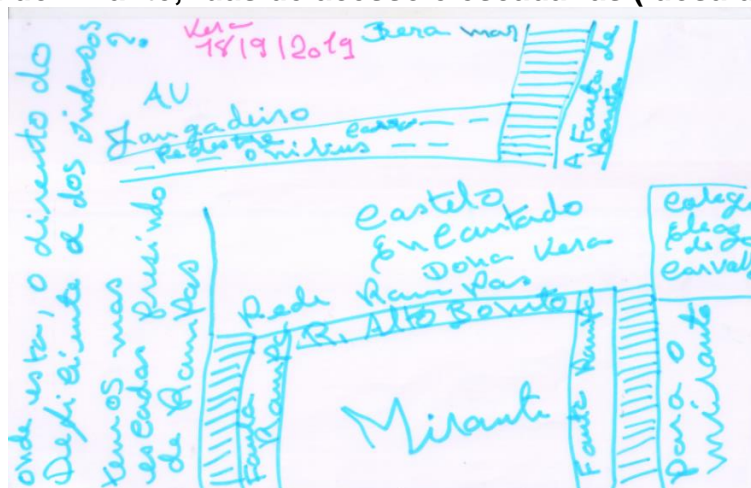 Vera
18/9/2019
Bera mar
AV
Jangadeiro
Pedestre carro
onibus
A Fauta de
Rampa
onde esta, o direito do
Deficiente e dos indosos
?
temos mas
escadas prisindo
de Rampas
Castelo
Encantado
Dona Vera
Rede Rampas
R. Alto Bonito
Fauta Rampa
Mirante
Fauta Rampa
Para o
mirante